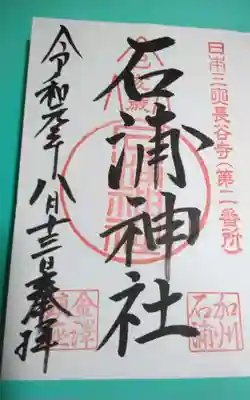 日本三所長谷寺(第二番所)
石浦神社
加州
石浦
金澤
令和元年八月十三日奉拝